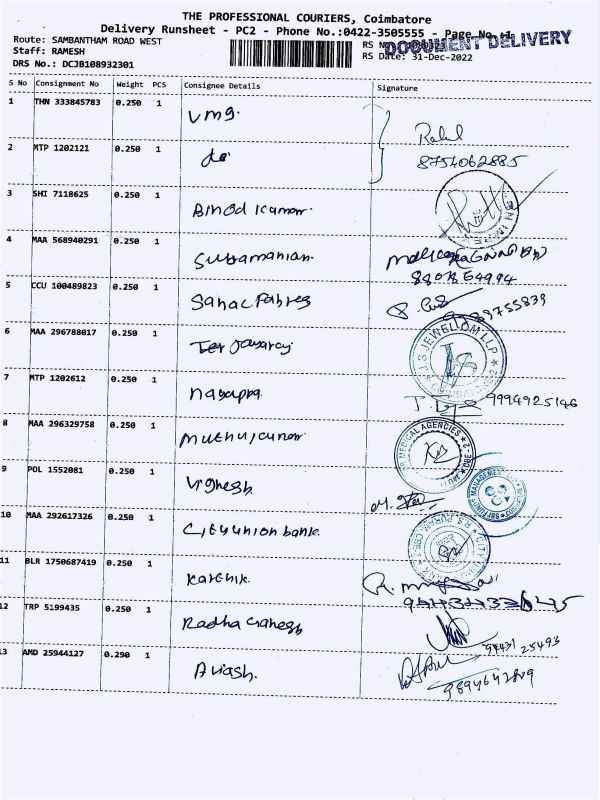 THE PROFESSIONAL COURIERS, Coimbatore
Delivery Runsheet - PC2 - Phone No.:0422-3505555 - Page No.:1
Route: SAMBANTHAM ROAD WEST
RS No
DOCUMENT DELIVERY
Staff: RAMESH
RS Date: 31-Dec-2022
DRS No.: DCJB108932301
S No Consignment No Weight PCS Consignee Details Signature
1 THN 333845783 0.250 1 vmg.
Rahul
2 MTP 1202121 0.250 1 do
8754062885
3 SHI 7118625 0.250 1 Binod Kumar.
4 MAA 568940291 0.250 1 Subramanian.
5 CCU 100489823 0.250 1
6 MAA 296788017 0.250 1 Tej Jayaraj
JEWELLOM LLP
7 MTP 1202612 0.250 1
9994925146
8 MAA 296329758 0.250 1 Muthukumar
MEDICAL AGENCIES
9 POL 1552081 0.250 1 Vignesh
10 MAA 292617326 0.250 1 City union bank.
11 BLR 1750687419 0.250 1 Karthik.
12 TRP 5199435 0.250 1 Radha Ganesh
94431 25493
13 AMD 25944127 0.290 1